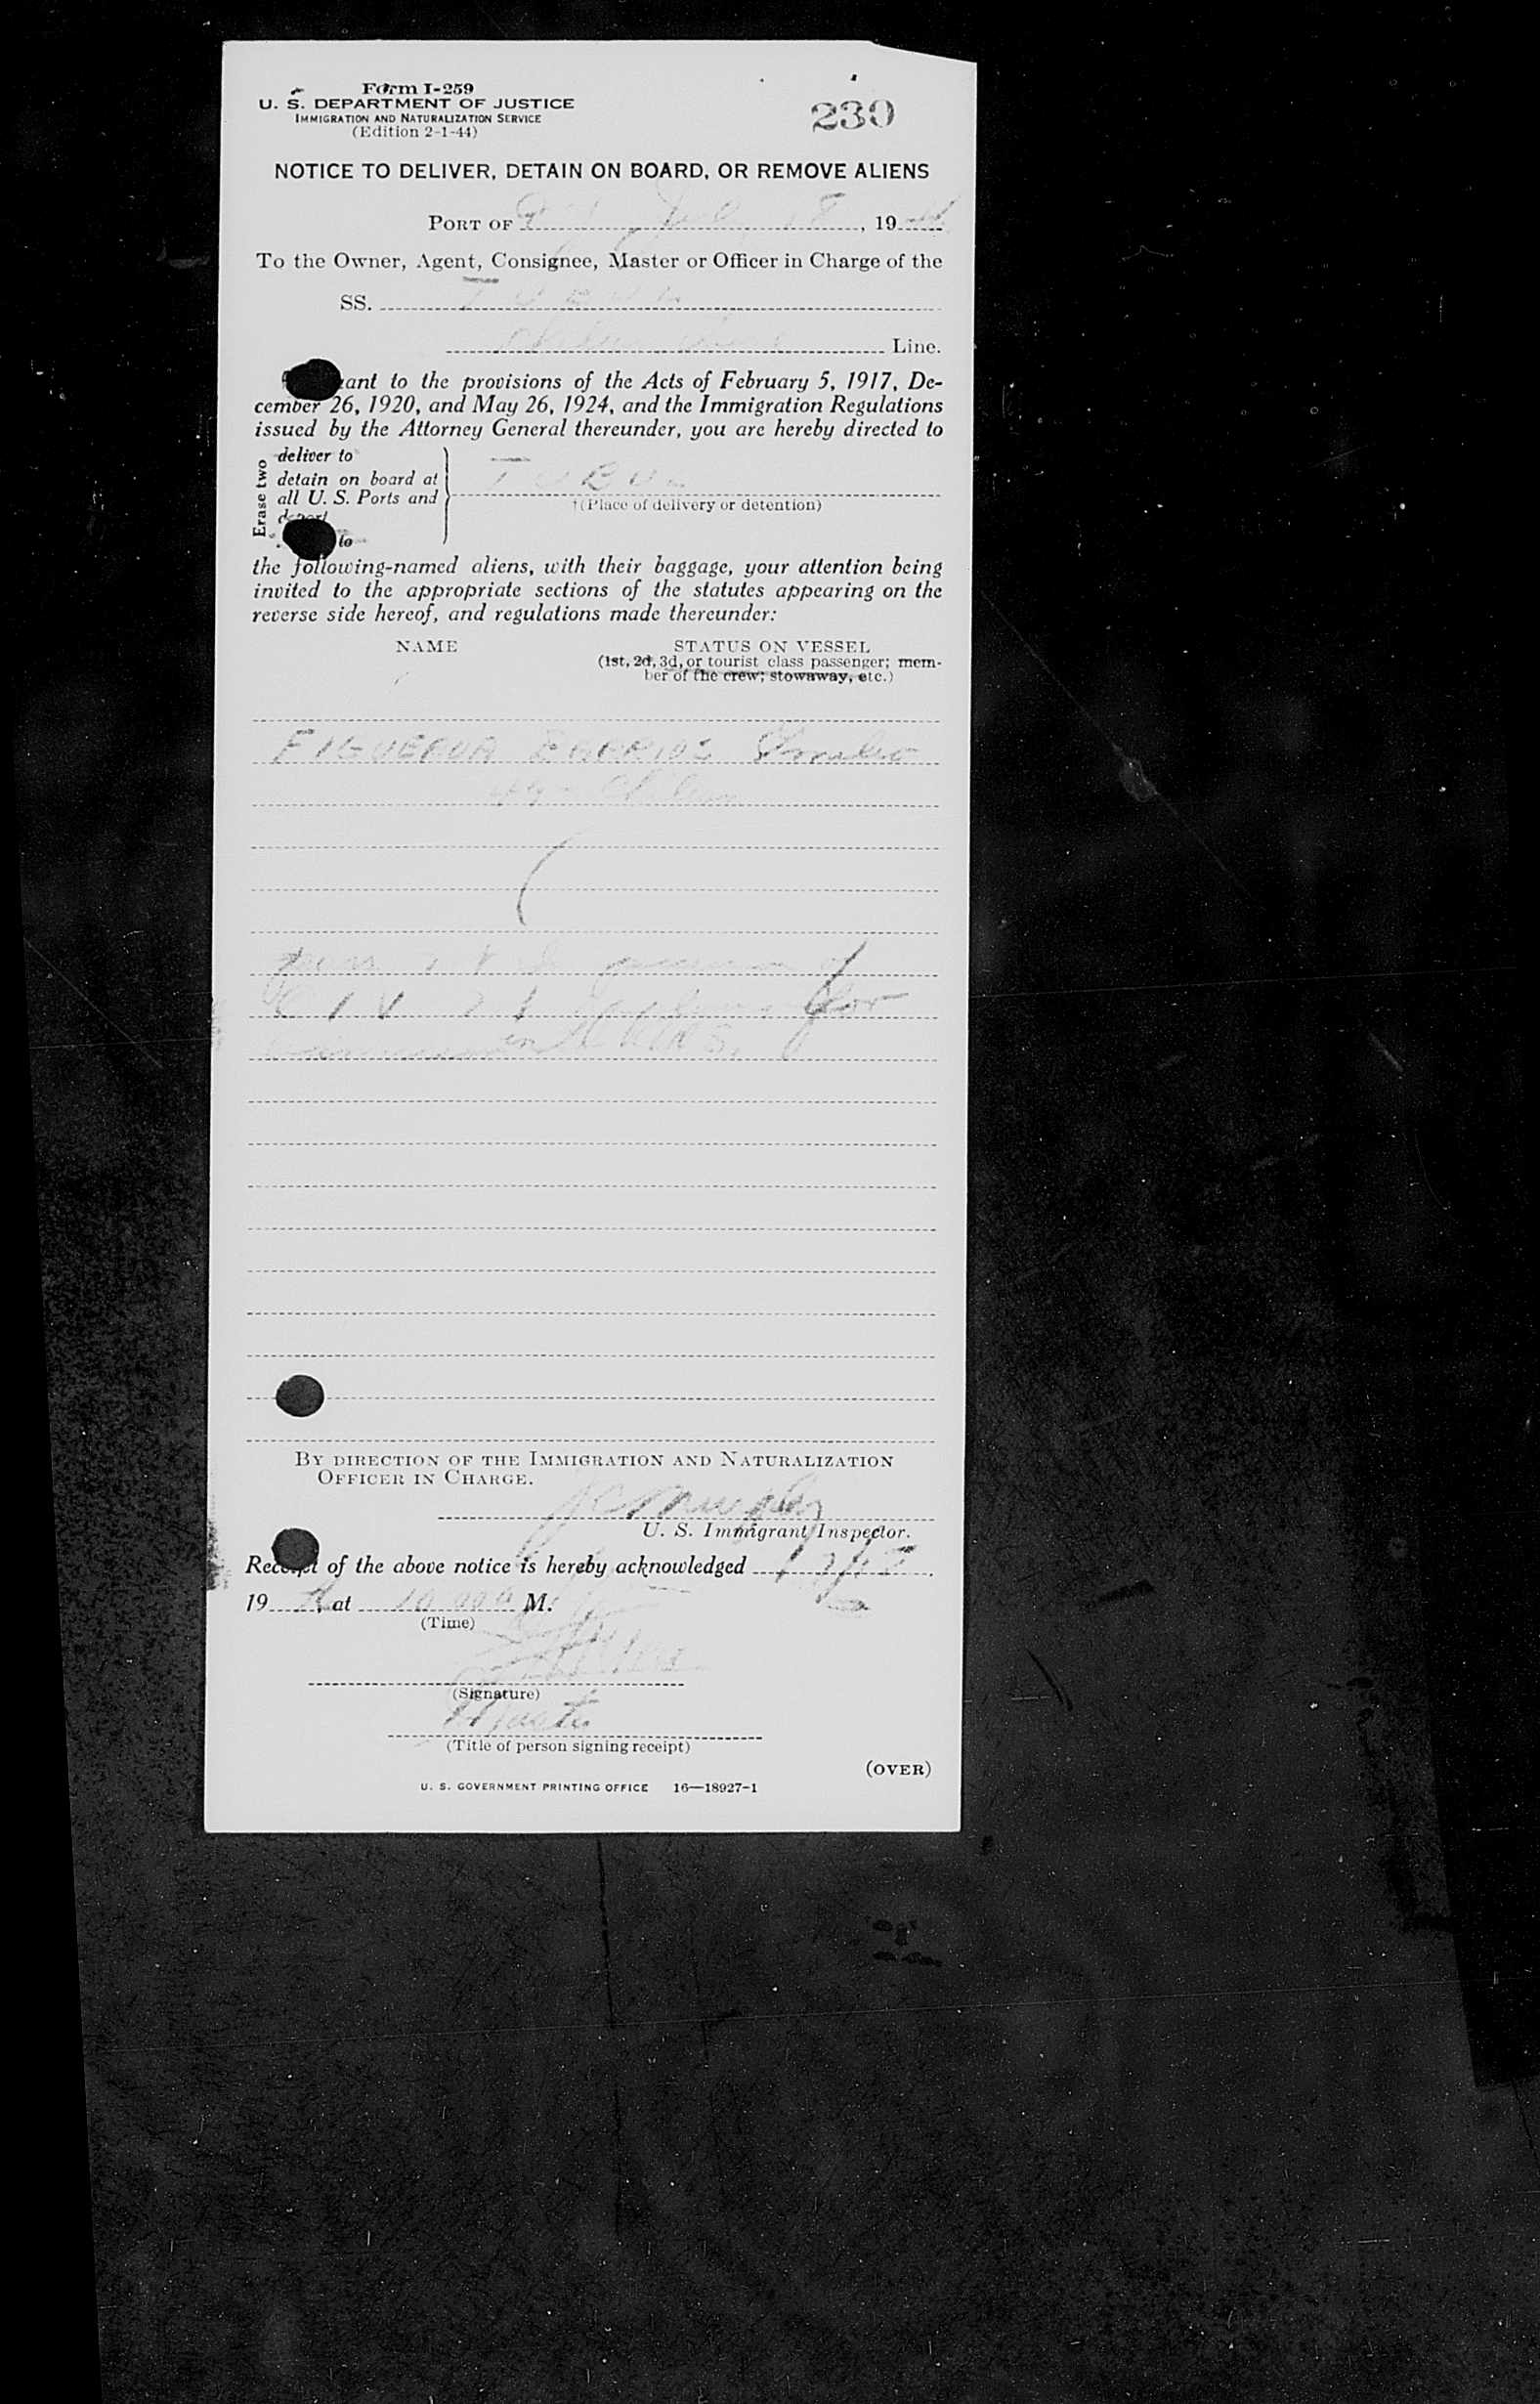 Form I-259
U. S. DEPARTMENT OF JUSTICE
IMMIGRATION AND NATURALIZATION SERVICE
(Edition 2-1-44)
230
NOTICE TO DELIVER, DETAIN ON BOARD, OR REMOVE ALIENS
PORT OF July 18, 19
To the Owner, Agent, Consignee, Master or Officer in Charge of the
SS. TUBUL
Line.
to the provisions of the Acts of February 5, 1917, De-
cember 26, 1920, and May 26, 1924, and the Immigration Regulations
issued by the Attorney General thereunder, you are hereby directed to
Erase two
deliver to
detain on board at
all U. S. Ports and
to
TUBUL
†(Place of delivery or detention)
the following-named aliens, with their baggage, your attention being
invited to the appropriate sections of the statutes appearing on the
reverse side hereof, and regulations made thereunder:
NAME
STATUS ON VESSEL
(1st, 2d, 3d, or tourist class passenger; mem-
ber of the crew; stowaway, etc.)
FIGUEROA BARRIOS
for
in
BY DIRECTION OF THE IMMIGRATION AND NATURALIZATION
OFFICER IN CHARGE.
JC Murphy
U. S. Immigrant Inspector.
Receipt of the above notice is hereby acknowledged
19 at M.
(Time)
(Signature)
Master
(Title of person signing receipt)
(OVER)
U. S. GOVERNMENT PRINTING OFFICE 16—18927-1